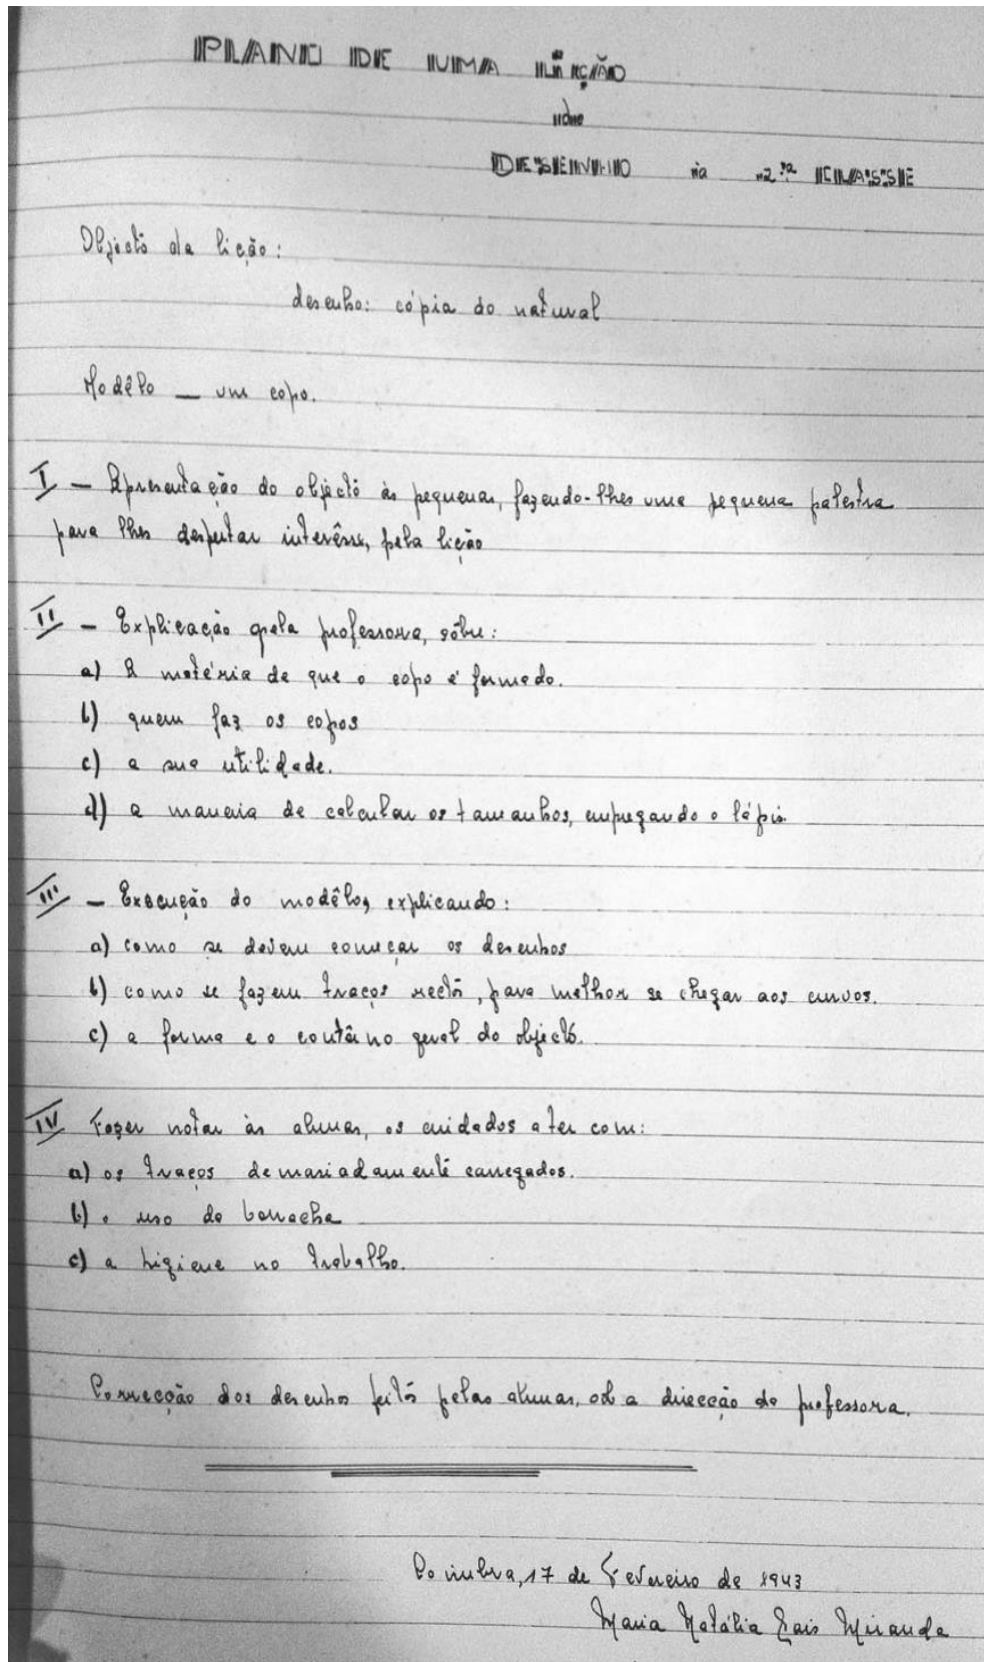 PLANO DE UMA LIÇÃO
de
DESENHO na 2.ª CLASSE
Objecto da lição:
desenho: cópia do natural
Modêlo — um copo.
I — Apresentação do objecto às pequenas, fazendo-lhes uma pequena palestra
para lhes despertar interêsse, pela lição
II — Explicação pela professora, sôbre:
a) A matéria de que o copo é formado.
b) quem faz os copos
c) a sua utilidade.
d) a maneira de calcular os tamanhos, empregando o lápis.
III — Execução do modêlo, explicando:
a) como se devem começar os desenhos
b) como se fazem traços rectos, para melhor se chegar aos curvos.
c) a forma e o contôrno geral do objecto.
IV Fazer notar às alunas, os cuidados a ter com:
a) os traços demasiadamente carregados.
b) o uso da borracha
c) a higiene no trabalho.
Correcção dos desenhos feitos pelas alunas, sob a direcção da professora.
Coimbra, 17 de Fevereiro de 1943
Maria Natália Miranda